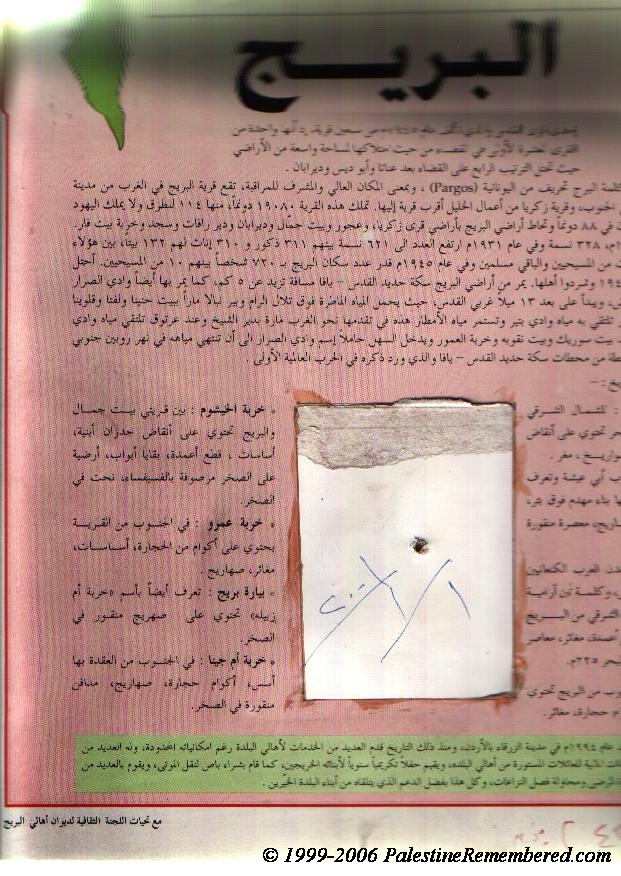 البريج
القرى المعمرة الأولى في القضاء من حيث امتلاكها لمساحة واسعة من الأراضي
حيث تحتل الترتيب الرابع على القضاء بعد عناتا وأبو ديس وديرابان .
كلمة البرج تحريف من اليونانية (Pargos) ، وبمعنى المكان العالي والمشرف للمراقبة، تقع قرية البريج في الغرب من مدينة
الجنوب، وقرية زكريا من أعمال الخليل أقرب قرية إليها. تملك هذه القرية ١٩٠٨٠ دونماً، منها ١١٤ للطرق ولا يملك اليهود
في ٨٨ دونماً وتحاط أراضي البريج بأراضي قرى زكريا، وعجور وبيت جمال وديرابان ودير رافات وسجد وخربة بيت فار.
٣٢٨ نسمة وفي عام ١٩٣١م ارتفع العدد الى ٦٢١ نسمة بينهم ٣١١ ذكور و ٣١٠ إناث لهم ١٣٢ بيتاً، بين هؤلاء
من المسيحيين والباقي مسلمين وفي عام ١٩٤٥م قدر عدد سكان البريج بـ ٧٢٠ شخصاً بينهم ١٠ من المسيحيين. أحتل
وتشردوا أهلها. يمر من أراضي البريج سكة حديد القدس – يافا مسافة تزيد عن ٥ كم، كما يمر بها أيضاً وادي الصرار
ويبدأ على بعد ١٣ ميلاً غربي القدس، حيث يحمل المياه الماطرة فوق تلال الرام وبير نبالا ماراً ببيت حنينا ولفتا وقلونيا
تلتقي به مياه وادي بتير وتستمر مياه الأمطار هذه في تقدمها نحو الغرب مارة بدير الشيخ وعند عرتوق تلتقي مياه وادي
بيت سوريك وبيت نقوبه وخربة العمور ويدخل السهل حاملاً إسم وادي الصرار الى أن تنتهي مياهه في نهر روبين جنوبي
من محطات سكة حديد القدس – يافا والذي ورد ذكره في الحرب العالمية الأولى .
: للشمال الشرقي
تحتوي على أنقاض
صواريخ ، مغر .
أبي عيشة وتعرف
بناء مهدم فوق بئر،
معصرة منقورة
العرب الكنعانيين
الشرقي من البريج
مغائر، معاصر
من البريج تحتوي
حجارة، مغائر.
* خربة الخيشوم : بين قريتي بيت جمال
والبريج تحتوي على أنقاض جدران أبنية،
أساسات ، قطع أعمدة، بقايا أبواب، أرضية
على الصخر مرصوفة بالفسيفساء، نحت في
الصخر.
* خربة عمرو : في الجنوب من القرية
يحتوي على أكوام من الحجارة، أساسات،
مغائر، صهاريج.
* بيارة بريج : تعرف أيضاً بأسم «خربة أم
زبيله» تحتوي على صهريج منقور في
الصخر.
* خربة أم جينا : في الجنوب من العقدة بها
أسس، أكوام حجارة، صهاريج، مدافن
منقورة في الصخر.
عام ١٩٩٤م في مدينة الزرقاء بالأردن، ومنذ ذلك التاريخ قدم العديد من الخدمات لأهالي البلدة رغم امكانياته المحدودة، وله العديد من
المالية للعائلات المستورة من أهالي البلده، ويقيم حفلاً تكريمياً سنوياً لأبنائه الخريجين، كما قام بشراء باص لنقل الموتى، ويقوم بالعديد من
المرضى ومحاولة فصل النزاعات، وكل هذا بفضل الدعم الذي يتلقاه من أبناء البلدة الخيّرين .
مع تحيات اللجنة الثقافية لديوان أهالي البريج
© 1999-2006 PalestineRemembered.com